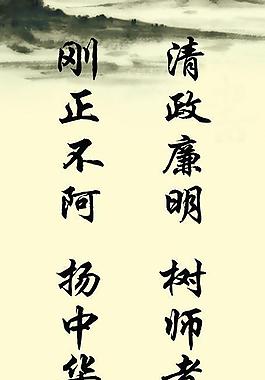 清政廉明 树师者
刚正不阿 扬中华